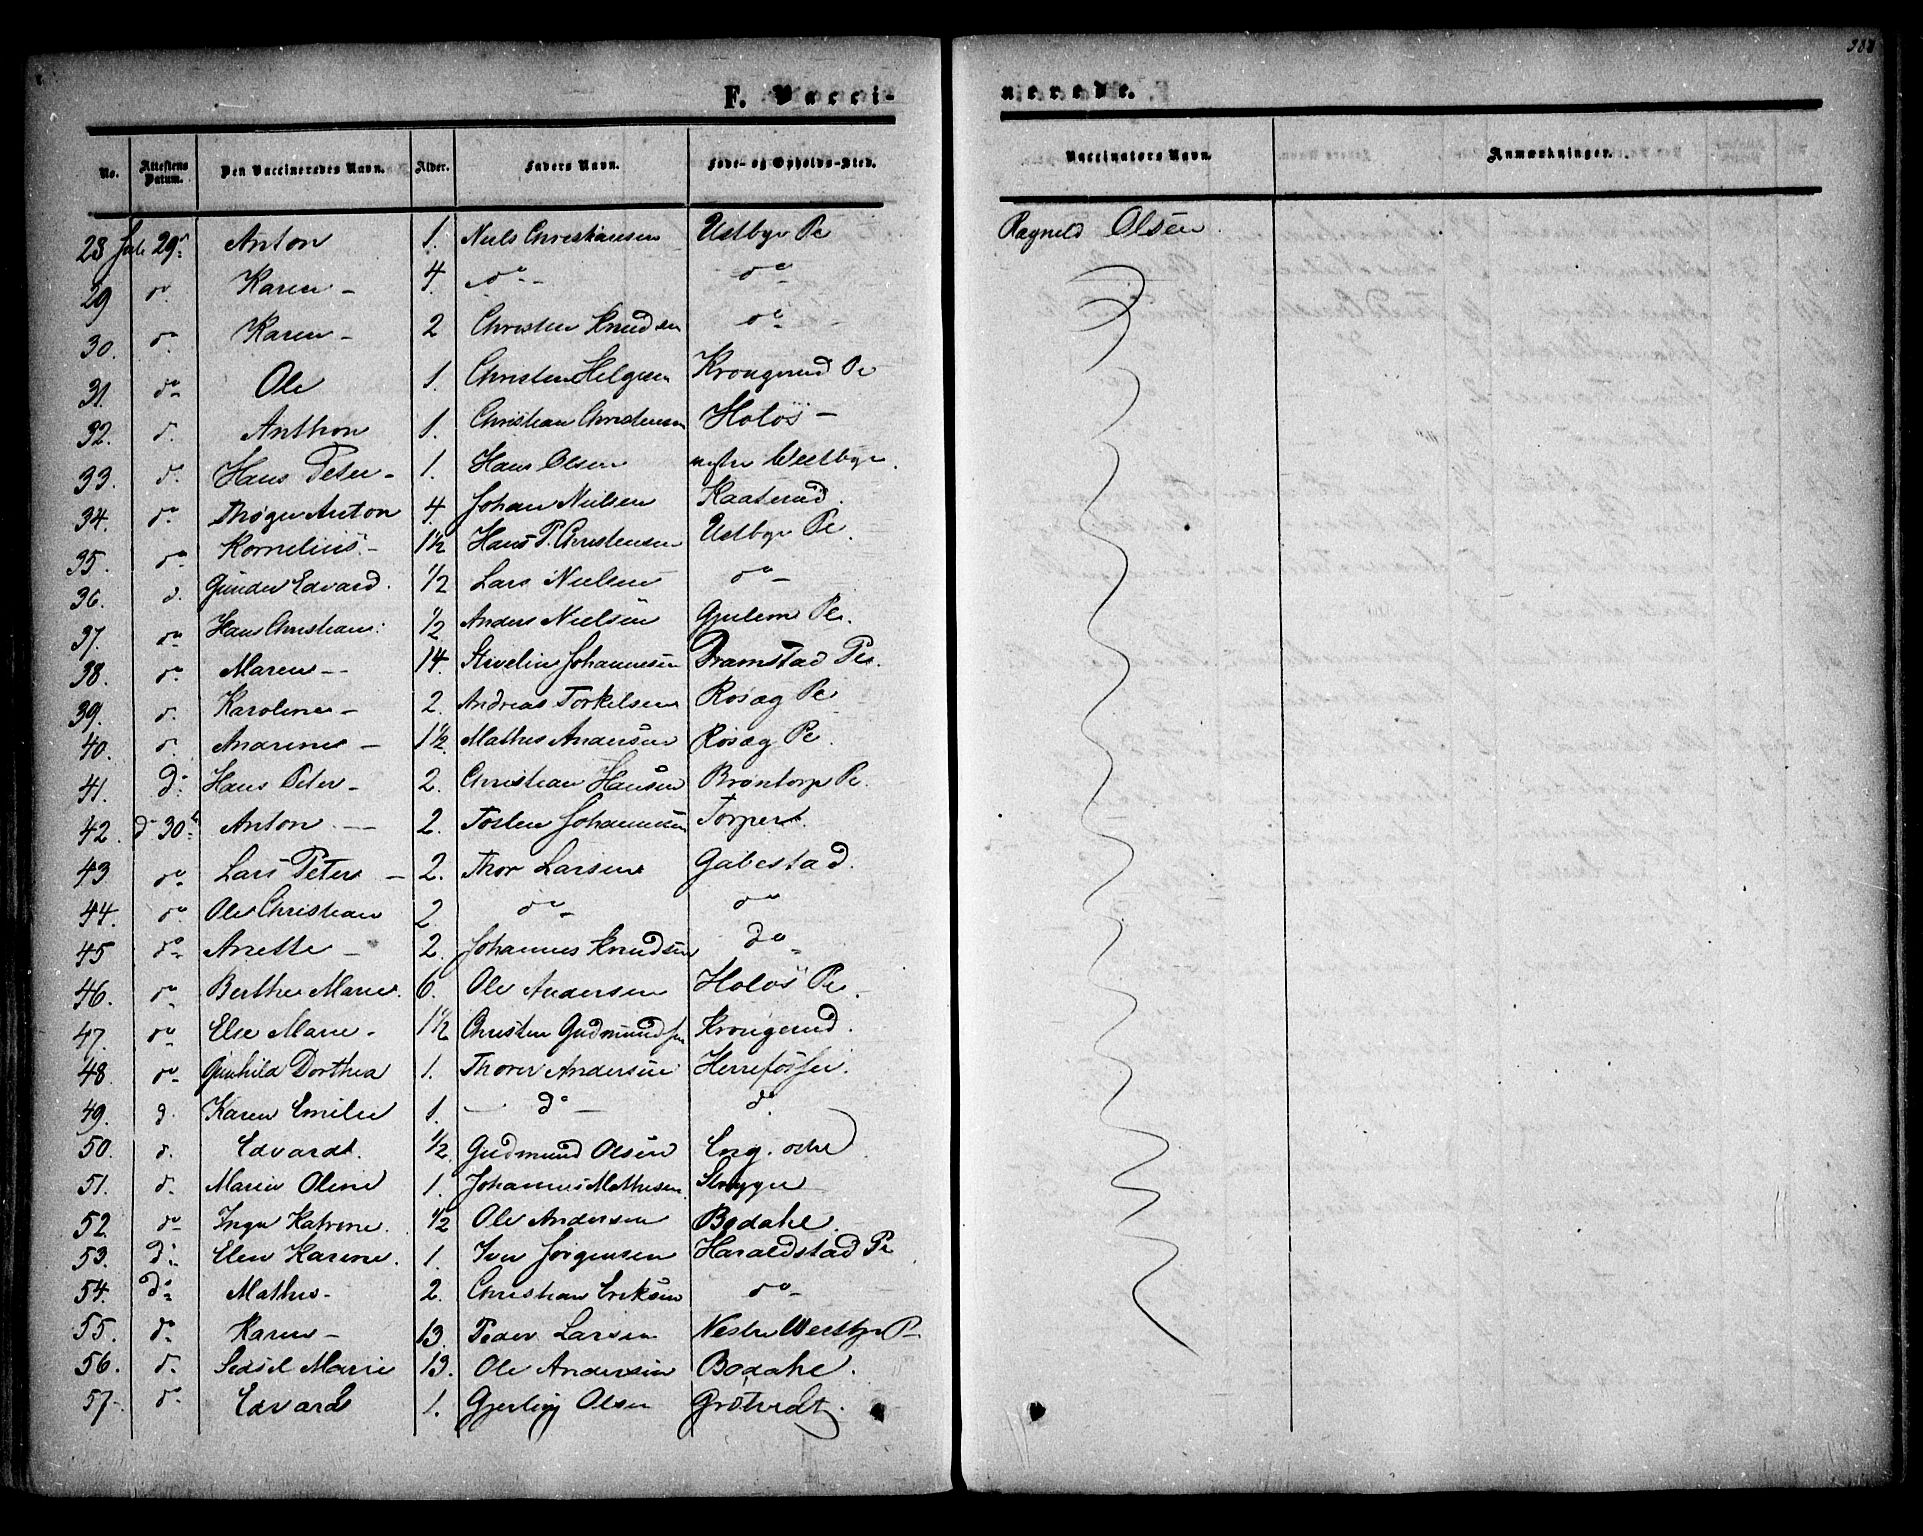 F. Vacci-
nerede.
No. Attestens Datum. Den Vaccineredes Navn. Alder. Faders Navn. Føde- og Opholds-Sted. Vaccinators Navn. Anmærkninger.
28 Juli 29 Anton 1. Niels Christiansen Ustbye Pe Ragnild Olsen.
29 do Karen - 4. do - do
30. do Karen - 2 Christen Knudsen do
31. do Ole 1. Christen Helgesen Krongerud Pe
32. d. Anthon 1. Christian Christensen Holøs -
33. d. Hans Peter - 1. Hans Olsen Westbye.
34. do Anton 4. Johan Nielsen Kaaterud.
35. do Kornelius - 1½ Hans P. Christensen Ustbye Pe.
36. d. Gunder Edvard. ½ Lars Nielsen do
37. do Hans Christian ½ Anders Nielsen Pe.
38. do Maren - 14. Johannesen Dramstad Pe.
39. d. Karoline - 2. Andreas Torkelsen Rosæg Pe
40. d. Andrine - 1½ Mathis Andersen Rosæg Pe.
41. d. Hans Peter - 2. Christian Hansen Brøntorp Pe.
42. d 30 Anton. - 2. Tosten Johannesen Torpert.
43 do Lars Peter - 2. Thor Larsen Gabestad.
44. do Ole Christian 2. do do
45 do Anette - 2. Johannes Knudsen do
46. do Berthe Marie. 6. Ole Andersen Holøs Pe.
47. do Else Marie - 1½ Christen Gudmundsen Krongerud.
48 do Gunhild Dorthea 1. Thorer Andersen Herrefosser.
49. d. Karen Emilie 1. - do - d.
50. d. Edvardt. ½ Gudmund Olsen Eng.
51. d. Maren Oline 1. Johannes Mathesen.
52. do Inger Katrine. ½ Ole Andersen Bodahl.
53. d. Elen Karine. 1. Iver Jørgensen Haraldstad Pe
54. do Mathis - 2. Christian Eriksen do
55. do Karen - 13. Peder Larsen Nestre Westbye P
56. d. Sidsel Marie 13. Ole Andersen Bodahl.
57. do Edvard 1. Gjerløv Olsen Grøtvedt.